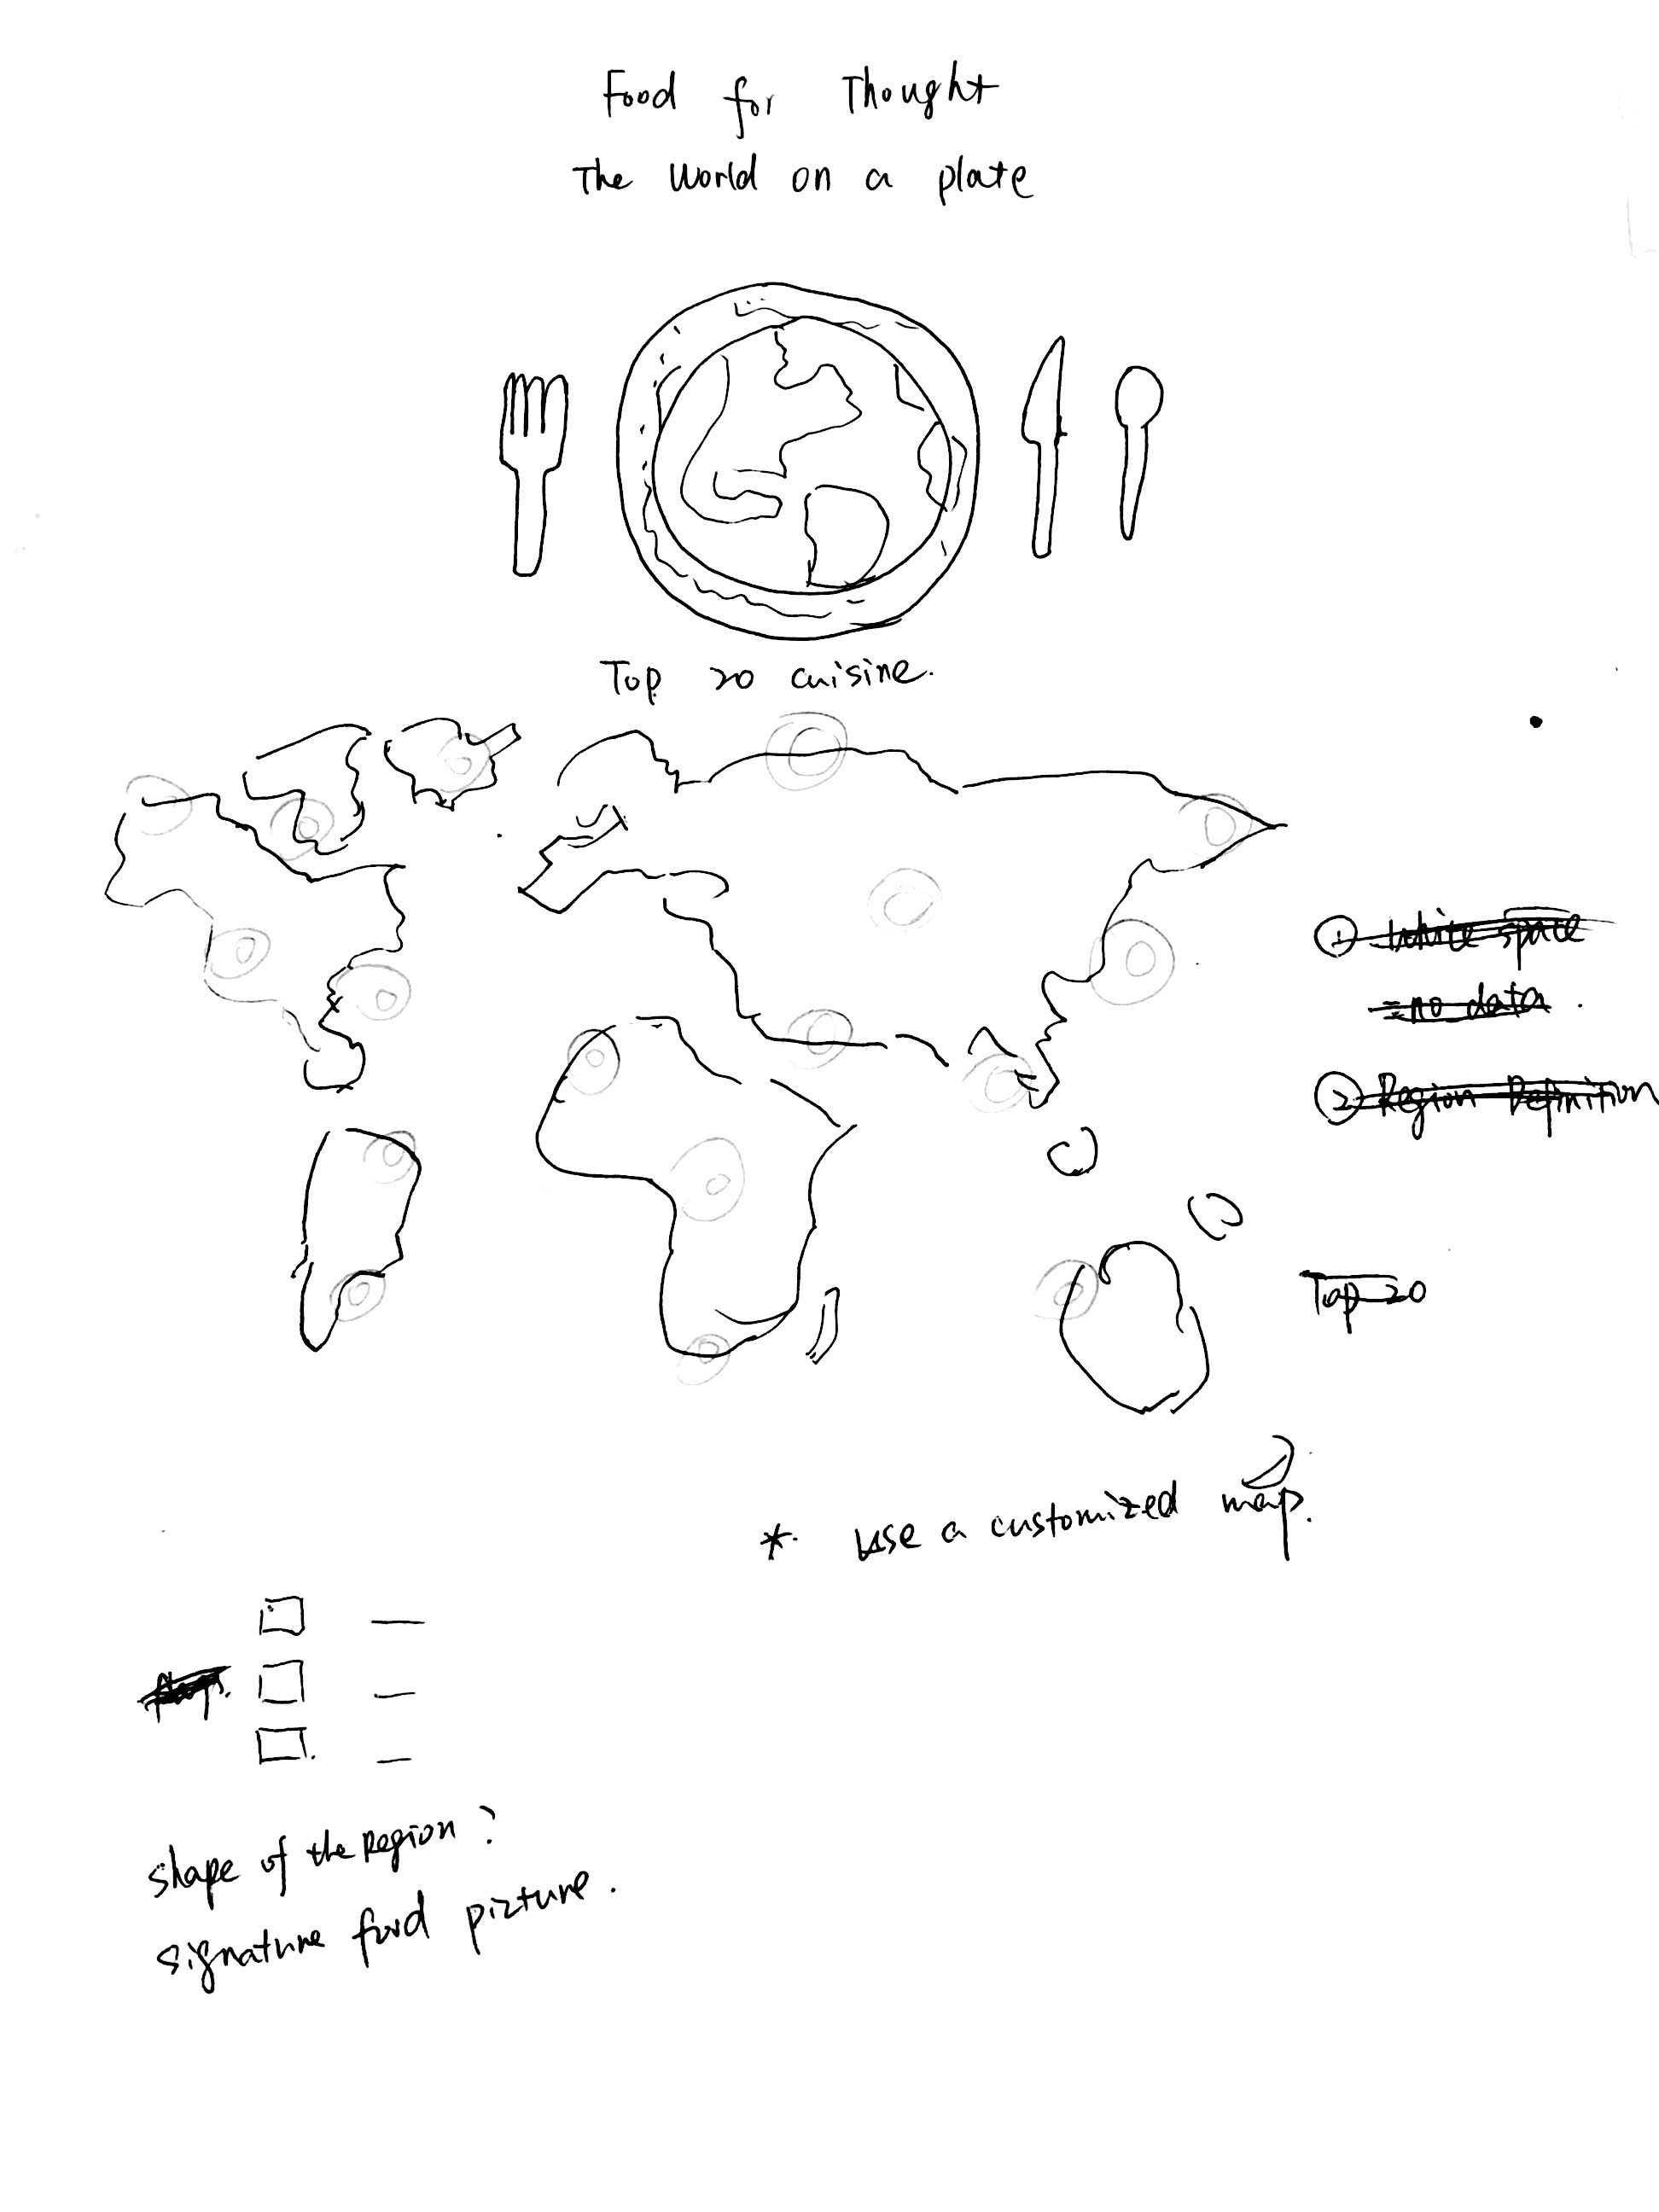 Food for Thought
The World on a plate
Top 20 cuisine.
① White space
= no data.
② Region Definition
Top 20
* use a customized map.
shape of the Region?
signature food picture.